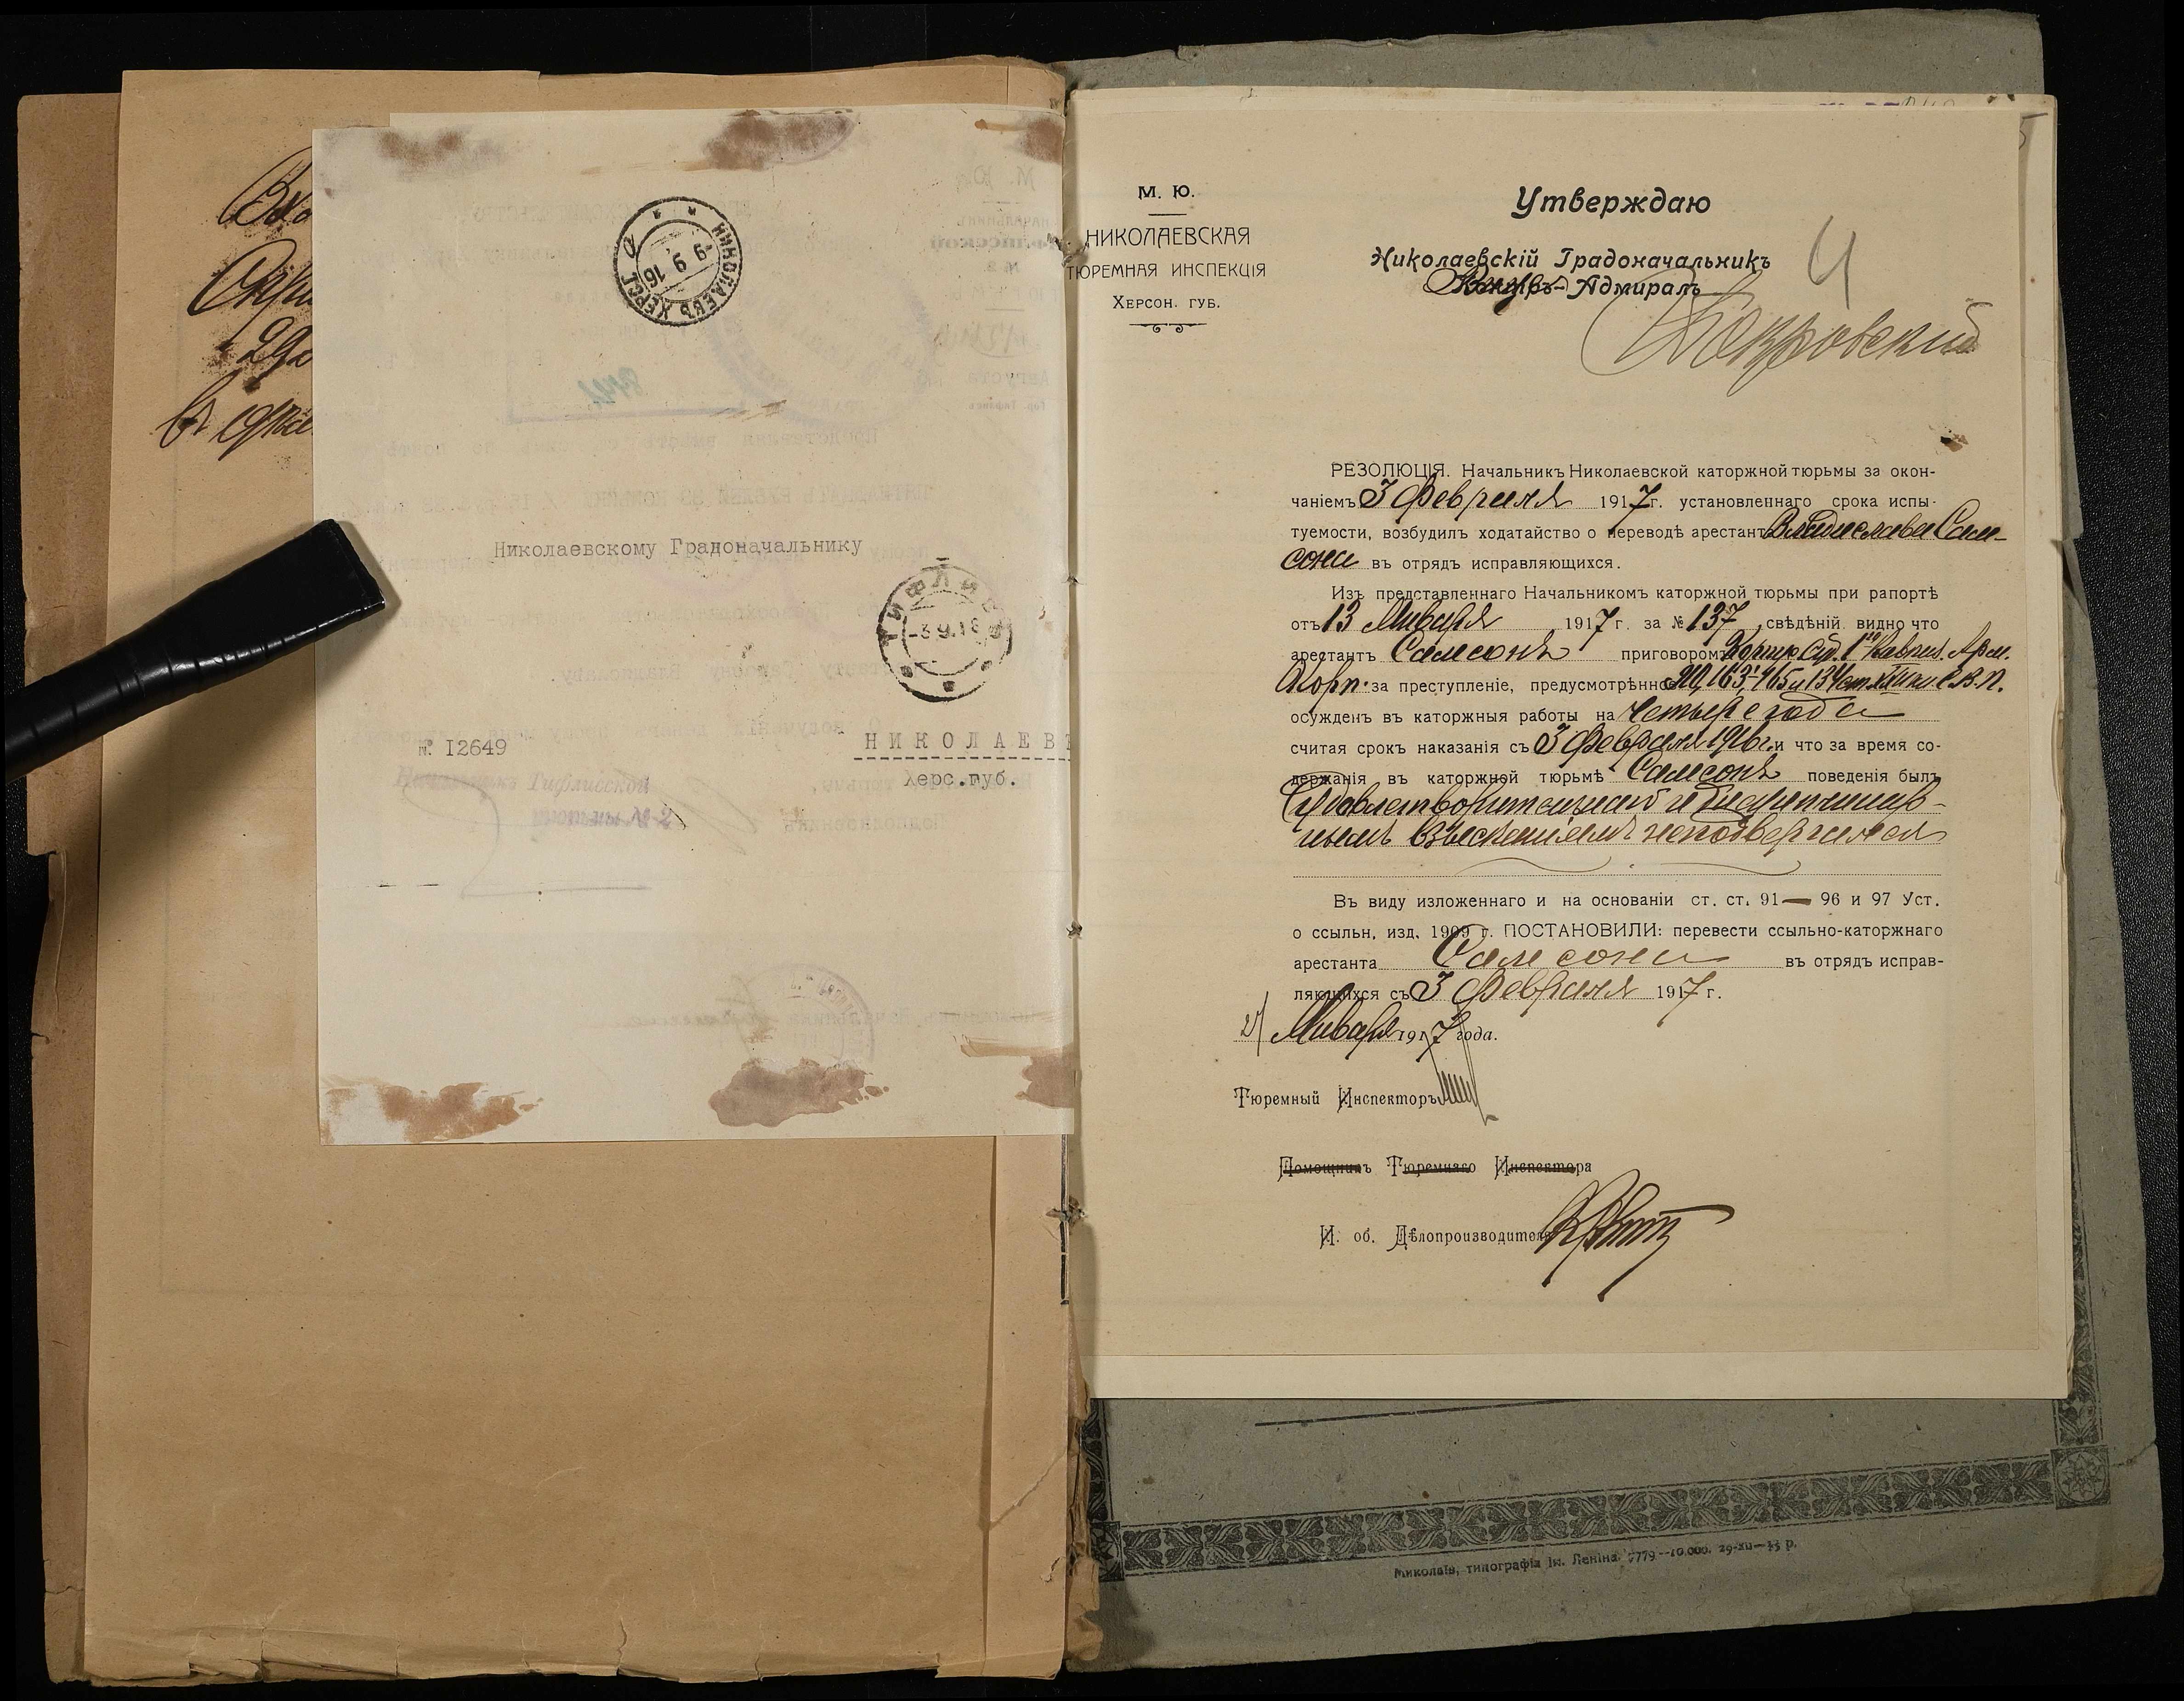 Николаевъ Херс.
-9 9 16
Николаевскому Градоначальнику
Тифлисъ
-3 9.16
№ I2649
НИКОЛАЕВЪ
Херс.губ.
4
М. Ю.
НИКОЛАЕВСКАЯ
ТЮРЕМНАЯ ИНСПЕКЦІЯ
Херсон. губ.
Утверждаю
Николаевскій Градоначальникъ
Контръ-Адмиралъ
Покровский
РЕЗОЛЮЦІЯ. Начальникъ Николаевской каторжной тюрьмы за окон-
чаніемъ 3 Февраля 1917 г. установленнаго срока испы-
туемости, возбудилъ ходатайство о переводѣ арестанта Владислава Сам-
сона въ отрядъ исправляющихся.
Изъ представленнаго Начальникомъ каторжной тюрьмы при рапортѣ
отъ 13 Января 1917 г. за № 137, свѣдѣній видно что
арестантъ Самсонъ приговоромъ Корпус. Суд. 1го Кавказ. Арм.
Корп. за преступленіе, предусмотрѣнное 163, 165 и 134 ст. XXII кн. С.В.П.
осужденъ въ каторжныя работы на четыре года
считая срокъ наказанія съ 3 Февраля 1916 г. и что за время со-
держанія въ каторжной тюрьмѣ Самсонъ поведенія былъ
удовлетворительнаго и дисциплинар-
нымъ взысканіямъ не подвергался
Въ виду изложеннаго и на основаніи ст. ст. 91— 96 и 97 Уст.
о ссыльн. изд. 1909 г. ПОСТАНОВИЛИ: перевести ссыльно-каторжнаго
арестанта Самсона въ отрядъ исправ-
ляющихся съ 3 Февраля 1917 г.
21 Января 1917 года.
Тюремный Инспекторъ
Помощникъ Тюремнаго Инспектора
И. об. Дѣлопроизводителя
Миколаїв, типографія ім. Леніна. 7779—10.000. 29-XII—33 р.